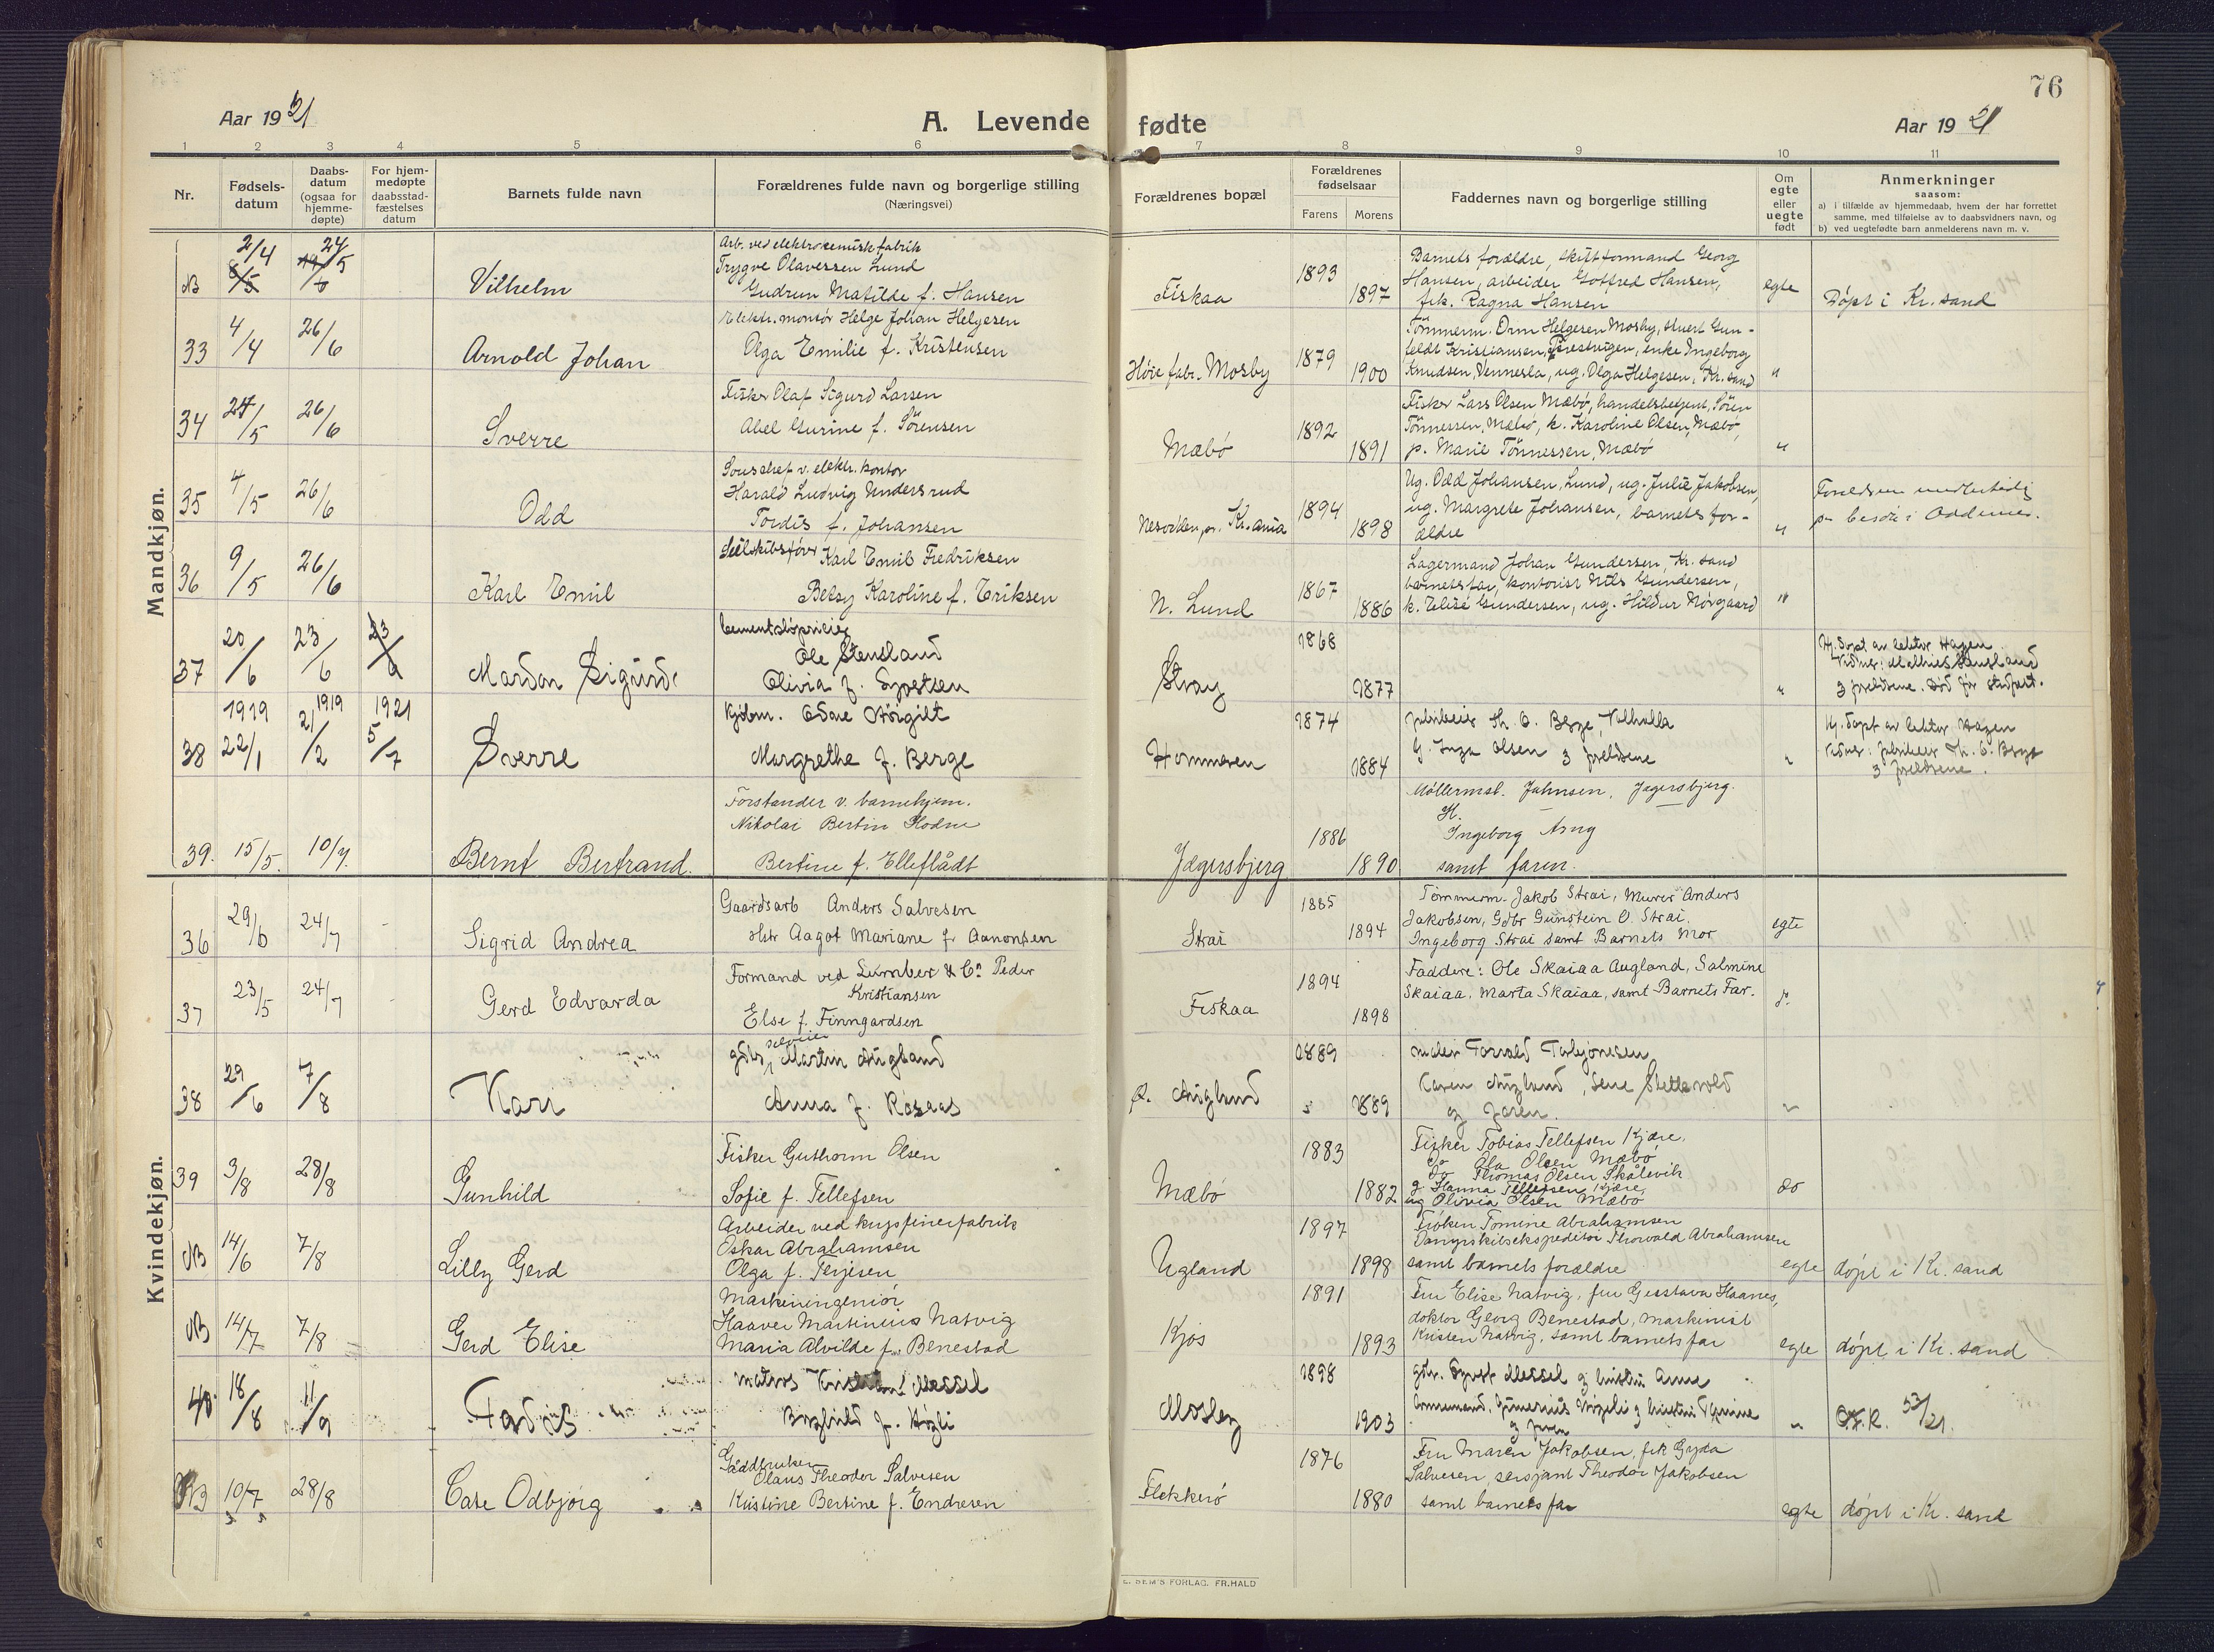 76
Aar 1921
A. Levende fødte
Aar 1921
1 2 3 4 5 6 7 8 9 10 11
Nr.
Fødsels-
datum
Daabs-
datum
(ogsaa for
hjemme-
døpte)
For hjem-
medøpte
daabsstad-
fæstelses
datum
Barnets fulde navn
Forældrenes fulde navn og borgerlige stilling
(Næringsvei)
Forældrenes bopæl
Forældrenes
fødselsaar
Farens Morens
Faddernes navn og borgerlige stilling
Om
egte
eller
uegte
født
Anmerkninger
saasom:
a) i tilfælde av hjemmedaab, hvem der har forrettet
samme, med tilføielse av to daabsvidners navn, og
b) ved uegtefødte barn anmelderens navn m. v.
Mandkjøn.
NB 2/4 24/5
Vilhelm
Arb. ved elektrokemisk fabrik
Trygve Olavessen Lund
Gudrun Matilde f. Hansen
Fiskaa
1893
1897
Barnets forældre, skiftformand Georg
Hansen, arbeider Gotfred Hansen,
frk. Ragna Hansen
egte
Døpt i Kr.sand
33 4/4 26/6
Arnold Johan
Elektr. montør Helge Johan Helgesen
Olga Emilie f. Kristensen
Høie fabr. Mosby
1879
1900
Tömmerm. Orm Helgesen Mosby, stuert Gun-
feldt Kristiansen, enke Ingeborg
Knudsen, Vennesla, ug. Olga Helgesen, Kr. sand
"
34 27/5 26/6
Sverre
Fisker Olaf Sigurd Larsen
Abel Gurine f. Sörensen
Mæbö
1892
1891
Fisker Lars Olsen Mæbö, handelsbetjent, Sören
Tönnessen, Mæbö, k. Karoline Olsen, Mæbö,
p. Marie Tönnessen, Mæbö
"
35 4/5 26/6
Odd
Souschef v. elektr. kontor
Harald Ludvig Undersrud
Tordis f. Johansen
Nesodden, pr. Kr.ania
1894
1898
Ug. Odd Johansen, Lund, ug. Julie Jakobsen,
ug. Margrete Johansen, barnets for-
ældre
"
p. besök i Oddernes.
36 9/5 26/6
Karl Emil
Karl Emil Fredriksen
Betsy Karoline f. Eriksen
N. Lund
1867
1886
Lagermand Johan Gundersen, Kr. sand
barnets far, kontorist Nils Gundersen,
k. Elise Gundersen, ug. Hildur Nörgaard
"
37 20/6 23/6
Mardon Sigurd
Ole Stensland
Olivia f. Syvertsen
Stray
1868
1877
"
Hj. døpt av lektor Hagen
Vidner: Mathies Stensland
& foreldrene. Død før stadfest.
1919 1919 1921
38 22/1 2/2 5/7
Sverre
Kjøbm. Odne Børgilt
Margrethe f. Berge
Hommeren
1874
1884
Fabrikeier Th. O. Berge, Valhalla
G. Inga Olsen & foreldrene
"
Hj. døpt av lektor Hagen
Vidner: fabrikeier Th. O. Berge
& foreldrene.
39. 15/5. 10/7.
Bernt Bertrand.
Forstander v. barnehjem.
Nikolai Bertin Hodne
Bertine f. Ellefládt
Jægersbjerg
1886
1890
Möllermst. Jahnsen, Jægersbjerg.
H.
Ingeborg Arng
samt faren.
Kvindekjøn.
36 29/6 24/7
Sigrid Andrea
Gaardsarb Anders Salvesen
Hstr Aagot Mariane f. Aanonsen
Strai
1885
1894
Tømmerm. Jakob Strai, Murer Anders
Jakobsen, Gdbr Gunstein O. Strai,
Ingeborg Strai samt Barnets Mor
egte
37 23/5 24/7
Gerd Edvarda
Formand ved Lumber & Co Peder
Kristiansen
Else f. Finngardsen
Fiskaa
1894
1898
Faddere: Ole Skaiaa Augland, Salmine
Skaiaa, Marta Skaiaa, samt Barnets Far.
38 29/6 7/8
Kari
gdbr, selveier Martin Augland
Anna f. Rosaas
Ø. Augland
1889
1889
maler Torvald Torbjørnsen
Karen Augland, Lene Slettevold
og faren.
"
39 3/8 28/8
Gunhild
Fisker Guthorm Olsen
Sofie f. Tellefsen
Mæbö
1883
1882
Fisker Tobias Tellefsen Kjære,
do Ola Olsen Mæbö
do Thomas Olsen Skålevik
g Hanna Tellefsen Kjære,
ug Olivia Olsen Mæbö
do
NB 14/6 7/8
Lilly Gerd
Arbeider ved krysfinerfabrik
Oskar Abrahamsen
Olga f. Terjesen
Ugland
1897
1898
Fröken Tomine Abrahamsen
Dampskibsekspeditör Thorvald Abrahamsen
samt barnets forældre
egte
døpt i Kr. sand
NB 14/7 7/8
Gerd Elise
Maskiningeniör
Haaver Martinius Natvig
Maria Alvilde f. Benestad
Kjos
1891
1893
Fru Elise Natvig, fru Gustava Haanes,
doktor Georg Benestad, maskinist
Kristen Natvig, samt barnets far
egte
døpt i Kr. sand
40. 18/8 11/9
Matros Messel
Borghild f.
Mosby
1898
1903
gdbr. Syvert Messel & hustru Anne
& faren
"
53/21.
NB 10/7 28/8
Care Odbjörg
Gaddbruker
Olaus Theodor Salvesen
Kristine Bertine f. Endresen
Flekkerö
1876
1880
Fru Maren Jakobsen, frk Gyda
Salvesen, sersjant Theodor Jakobsen
samt barnets far
egte
døpt i Kr. sand
E. SEM'S FORLAG. FR.HALD